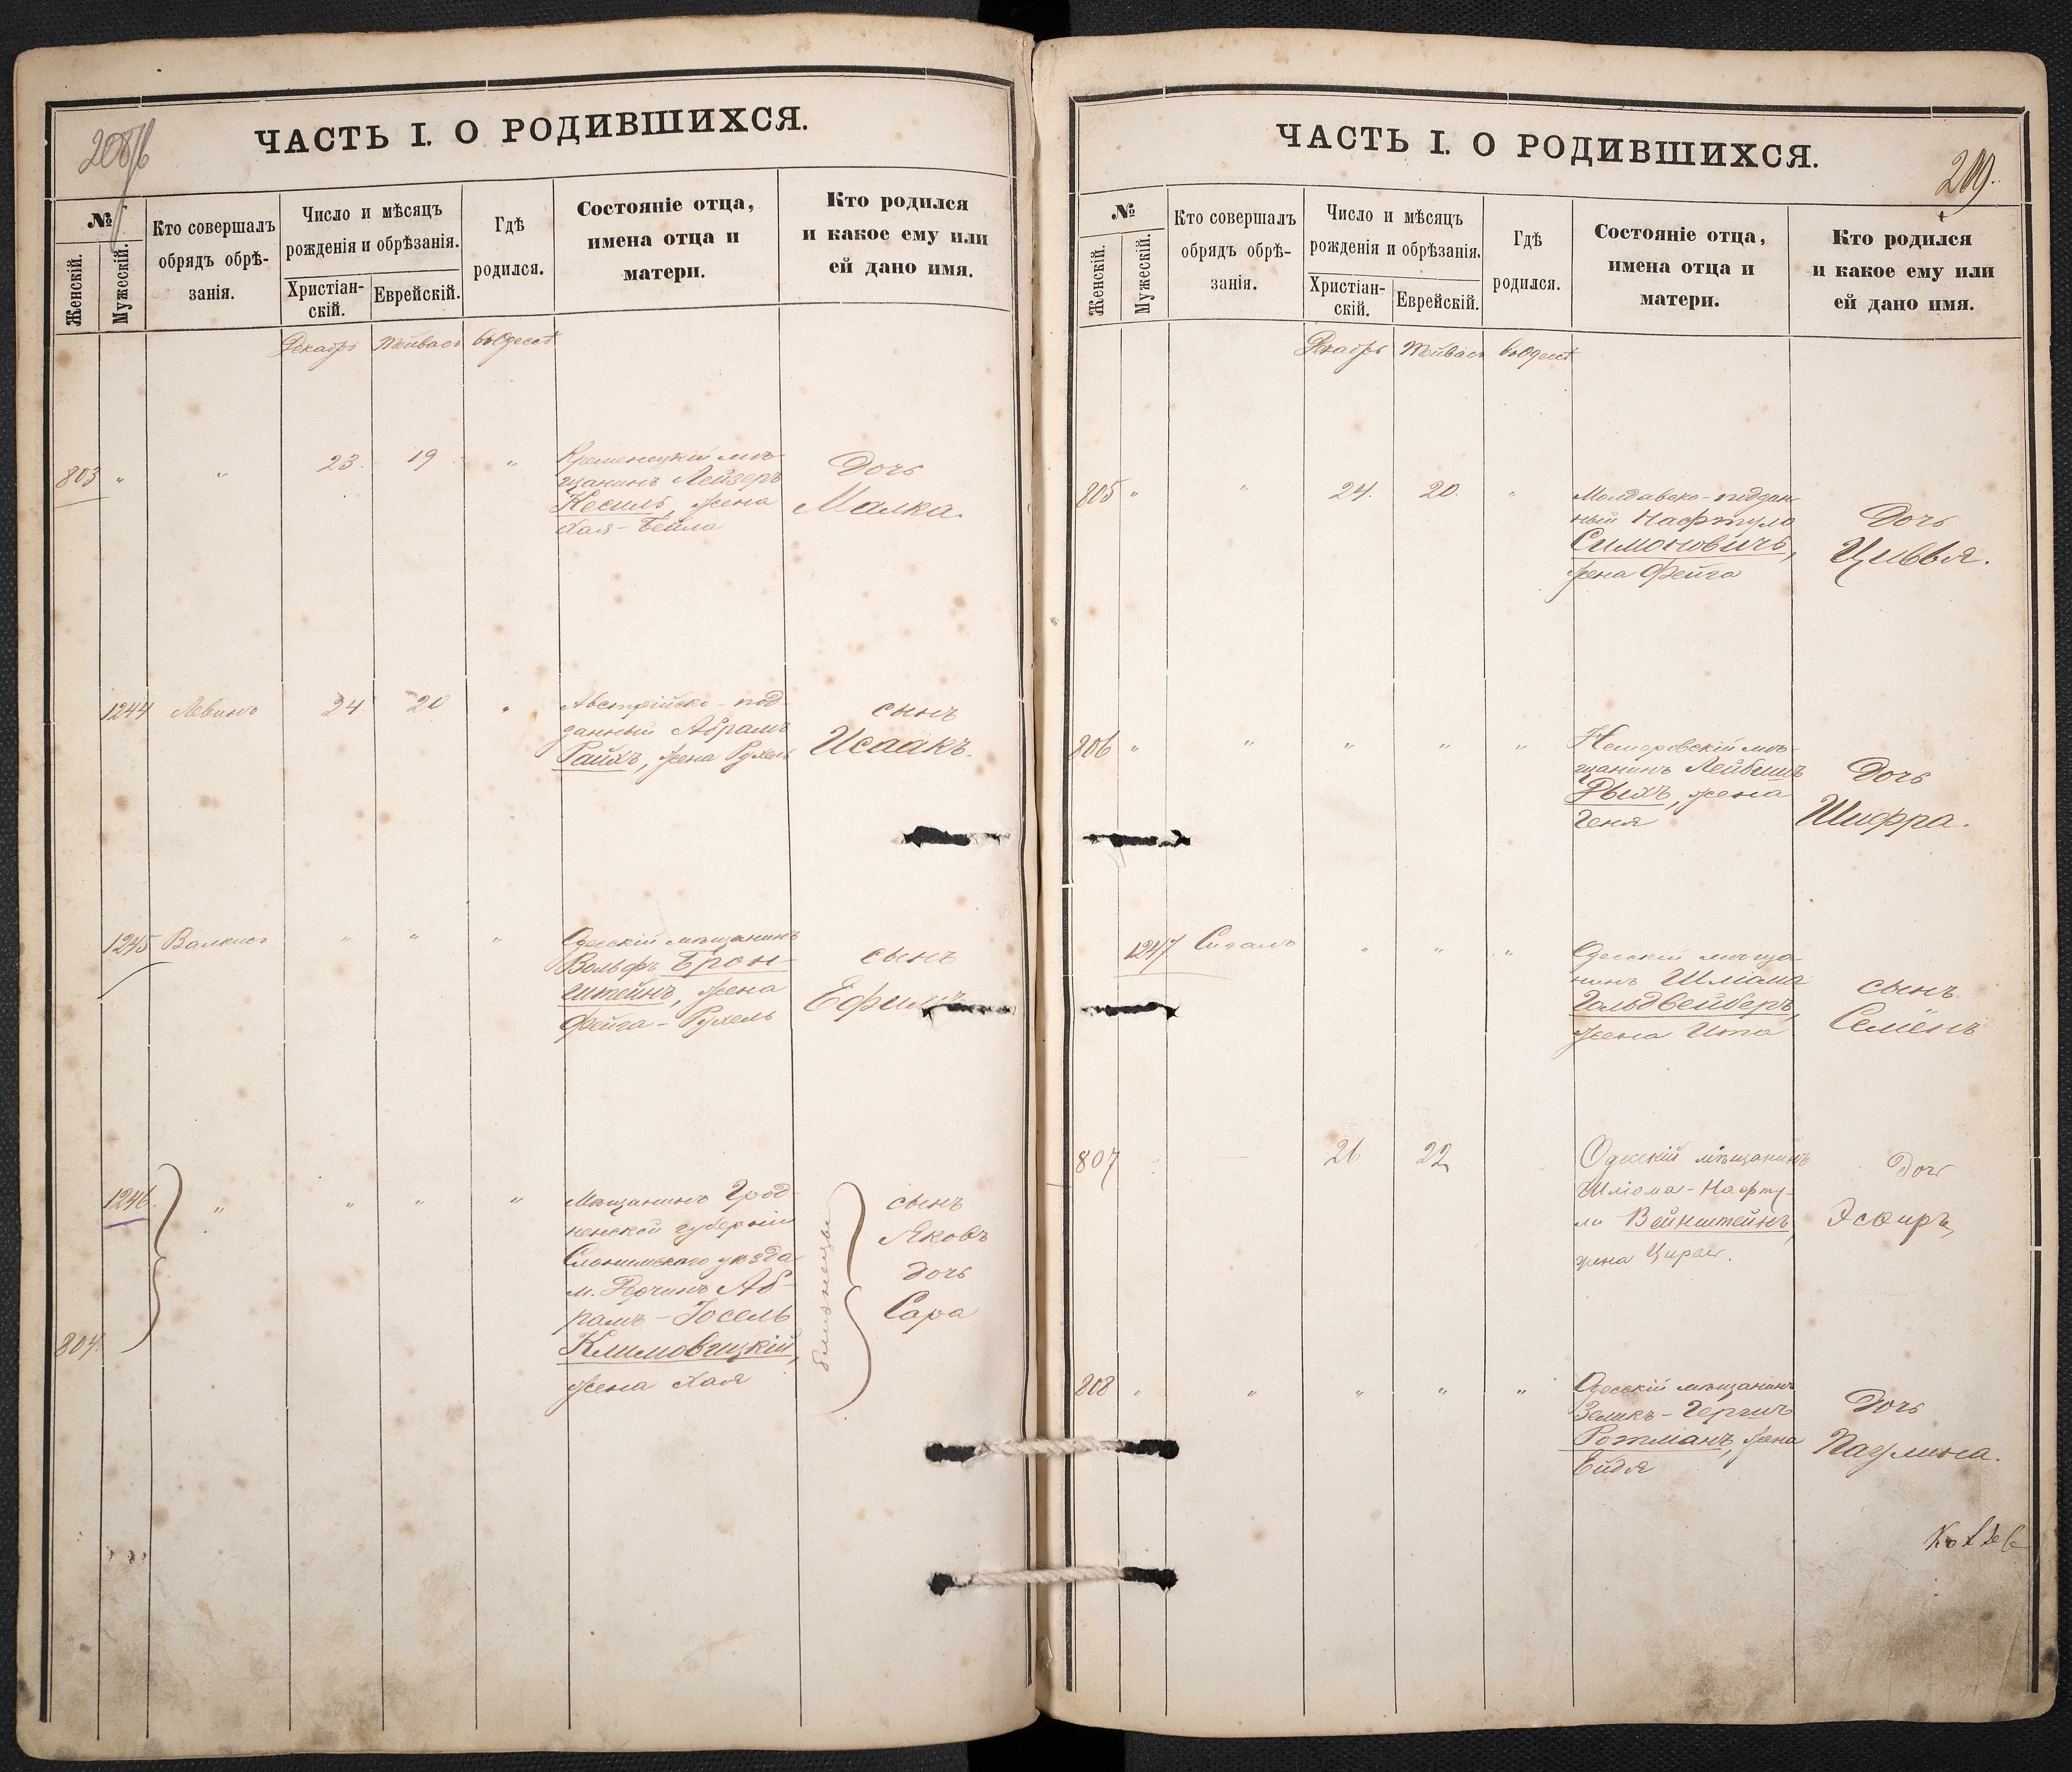 208/б
ЧАСТЬ I. О РОДИВШИХСЯ.
№
Женскій.
Мужескій.
Кто совершалъ
обрядъ обрѣ-
занія.
Число и мѣсяцъ
рожденія и обрѣзанія.
Христіан-
скій.
Еврейскій.
Гдѣ
родился.
Состояніе отца,
имена отца и
матери.
Кто родился
и какое ему или
ей дано имя.
Декабрь Тейвасъ въ Одессѣ
803 " " 23. 19 "
Кременецкій мѣ-
щанинъ Лейзеръ
Кесиль, жена
Хая-Бейла
Дочь
Малка.
1244 Левинъ 24 20 "
Австрійско-под-
данный Абрамъ
Райхъ, жена Рухель
сынъ
Исаакъ.
1245 Валкисъ " " "
Одесскій мѣщанинъ
Вольфъ Брон-
штейнъ, жена
Фейга-Рухель
сынъ
Ефимъ
1246. " " " "
804.
Мѣщанинъ Грод-
ненской губерніи
Слонимскаго уѣзда
м. Деречинъ Аб-
рамъ-Іосель
Климовицкій,
жена Хая
близнецы
сынъ
Яковъ
дочь
Сара
209.
ЧАСТЬ I. О РОДИВШИХСЯ.
№
Женскій.
Мужескій.
Кто совершалъ
обрядъ обрѣ-
занія.
Число и мѣсяцъ
рожденія и обрѣзанія.
Христіан-
скій.
Еврейскій.
Гдѣ
родился.
Состояніе отца,
имена отца и
матери.
Кто родился
и какое ему или
ей дано имя.
Декабрь Тейвасъ въ Одессѣ
805 " " 24. 20. "
Молдавско-поддан-
ный Нафтула
Симоновичъ,
жена Фейга
Дочь
Цивья.
806 " " " " "
Немировскій мѣ-
щанинъ Лейбишъ
Дыхъ, жена
Геня
Дочь
Шифра.
1247 Сигалъ " " "
Одесскій мѣща-
нинъ Шліома
Гольдвейберъ,
жена Ита
сынъ
Семёнъ
807 26 22
Одесскій мѣщанинъ
Шліома-Нафту-
ли Вейнштейнъ,
жена
Дочь
Эсѳирь
808 " " " " "
Одесскій мѣщанинъ
Зеликъ-Гершъ
Ротманъ, жена
Ейдя
Дочь
Паулина.